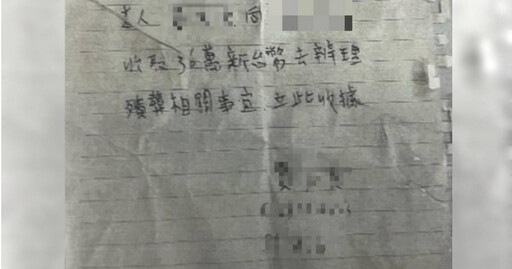 本人 向
收取 萬新台幣去辦理
殯葬相關事宜 立此收據